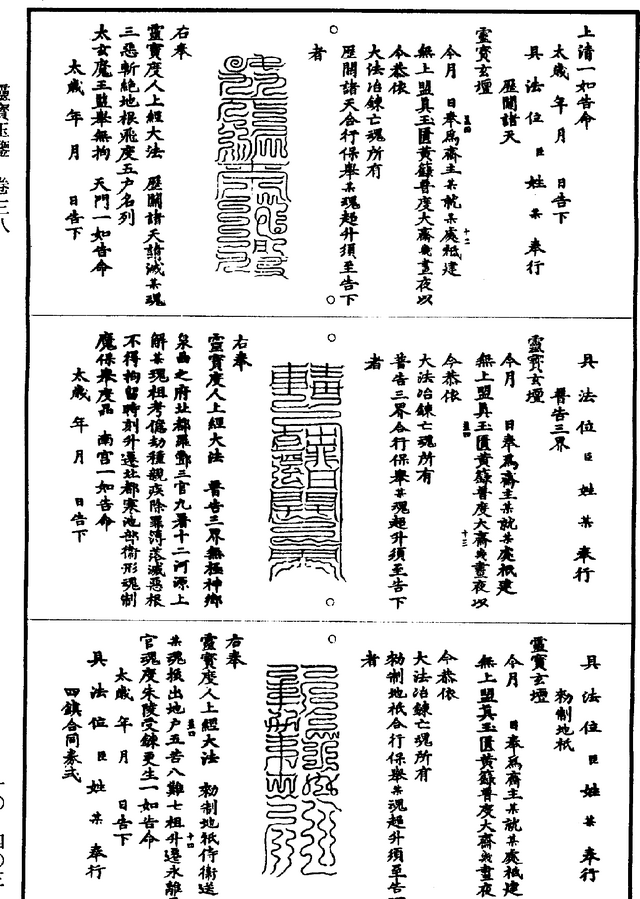 上清一如告命
太歲　年　月　　日告下
具　法　位　臣　姓　某　奉行
歷關諸天
靈寶玄壇
今月　　日奉爲齋主某就某處袛建
無上盟真玉匱黃籙普度大齋幾晝夜以
今恭依
大法冶鍊亡魂所有
歷關諸天合行保舉某魂超升須至告下
者
右奉
靈寶度人上經大法　歷關諸天請滅某魂
三惡斬絶地根飛度五户名列
太玄魔王監舉無拘　天門一如告命
太歲　年　月　　日告下
具　法　位　臣　姓　某　奉行
普告三界
靈寶玄壇
今月　　日奉爲齋主某就某處袛建
無上盟真玉匱黃籙普度大齋幾晝夜以
今恭依
大法冶鍊亡魂所有
普告三界合行保舉某魂超升須至告下
者
右奉
靈寶度人上經大法　普告三界無極神鄉
泉曲之府北都羅酆三官九署十二河源上
解某魂祖考億劫種親疾除罪簿落滅惡根
不得拘留時刻升遷北都寒池部衛形魂制
魔保舉度品　南宫一如告命
太歲　年　月　　日告下
具　法　位　臣　姓　某　奉行
勑制地袛
靈寶玄壇
今月　　日奉爲齋主某就某處袛建
無上盟真玉匱黃籙普度大齋幾晝夜
今恭依
大法冶鍊亡魂所有
勑制地袛合行保舉某魂超升須至告
者
右奉
靈寶度人上經大法　勑制地袛侍衛送
某魂拔出地户五苦八難七祖升遷永離
官魂度朱陵受鍊更生一如告命
太歲　年　月　　日告下
具　法　位　臣　姓　某　奉行
四鎮合同券式
靈寶玉鑒　卷三八